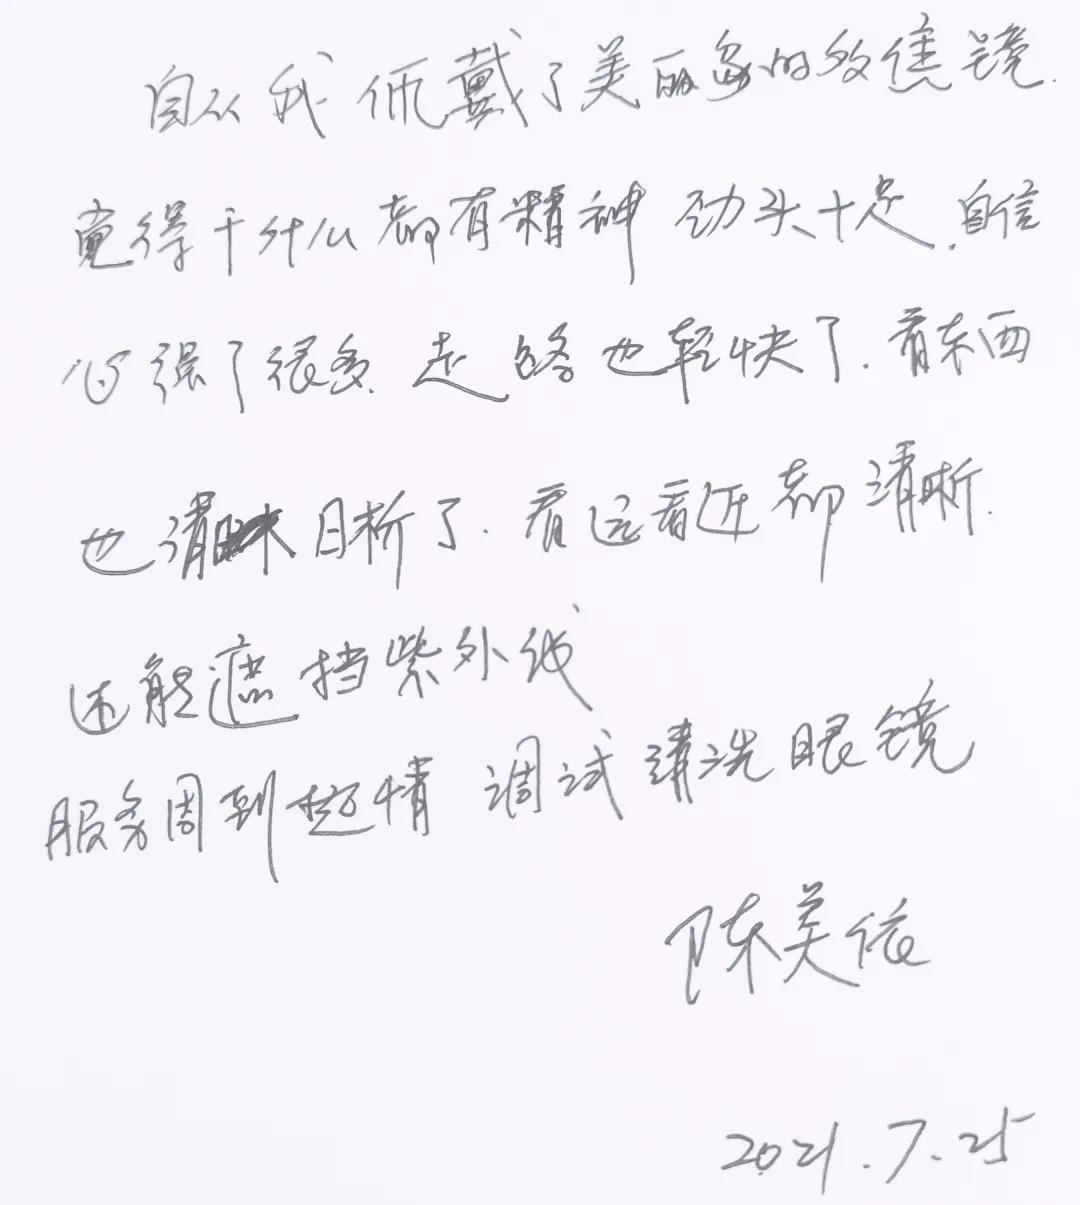 自从我佩戴了美丽岛的多焦镜.
觉得干什么都有精神 劲头十足,自信
心强了很多.走路也轻快了.看东西
也清晰了.看远看近都清晰.
还能遮挡紫外线
服务周到热情 调试清洗眼镜
陈美依
2021.7.25